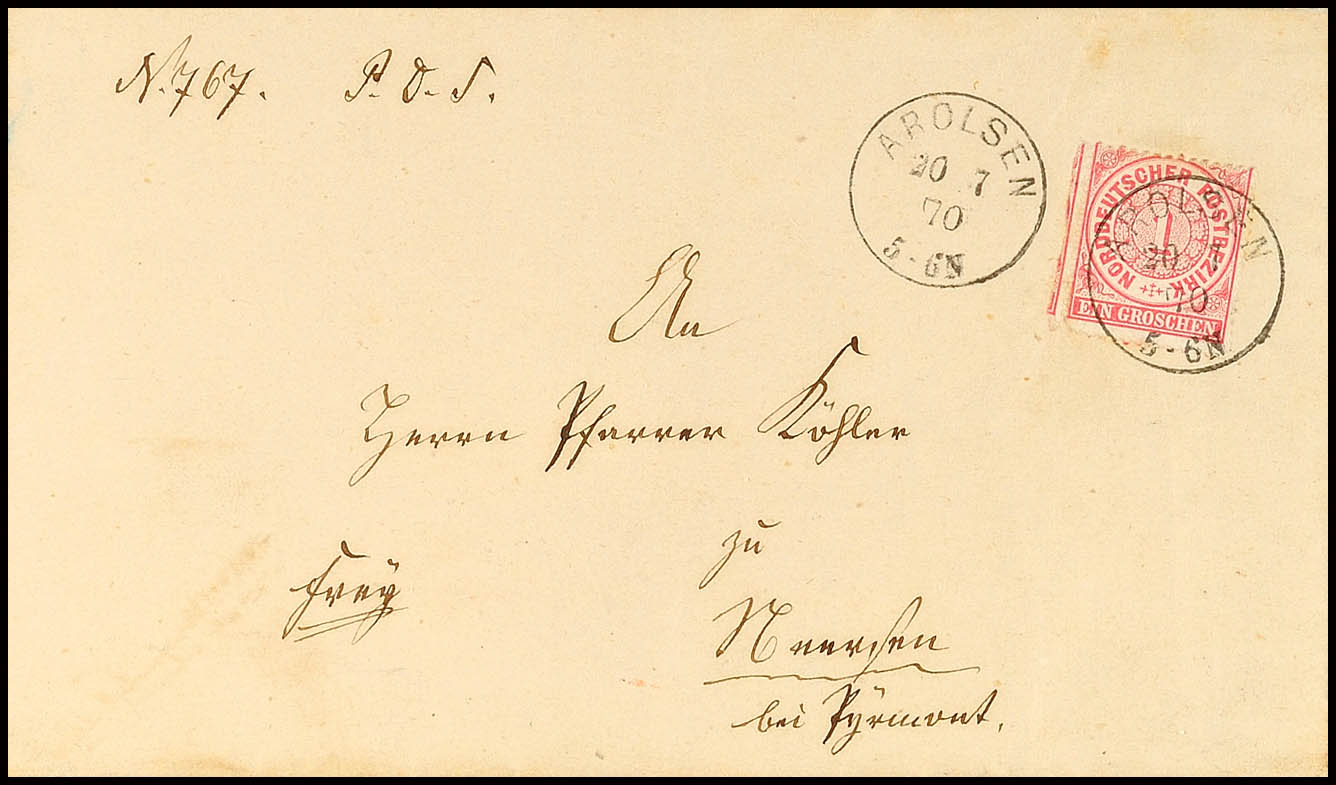 N. 767. P. D. S.
AROLSEN
20 7
70
5-6N
NORDDEUTSCHER POSTBEZIRK
1
EIN GROSCHEN
AROLSEN
20 7
70
5-6N
An
Herrn Pfarrer Köhler
zu
Freÿ
Neersen
bei Pÿrmont.